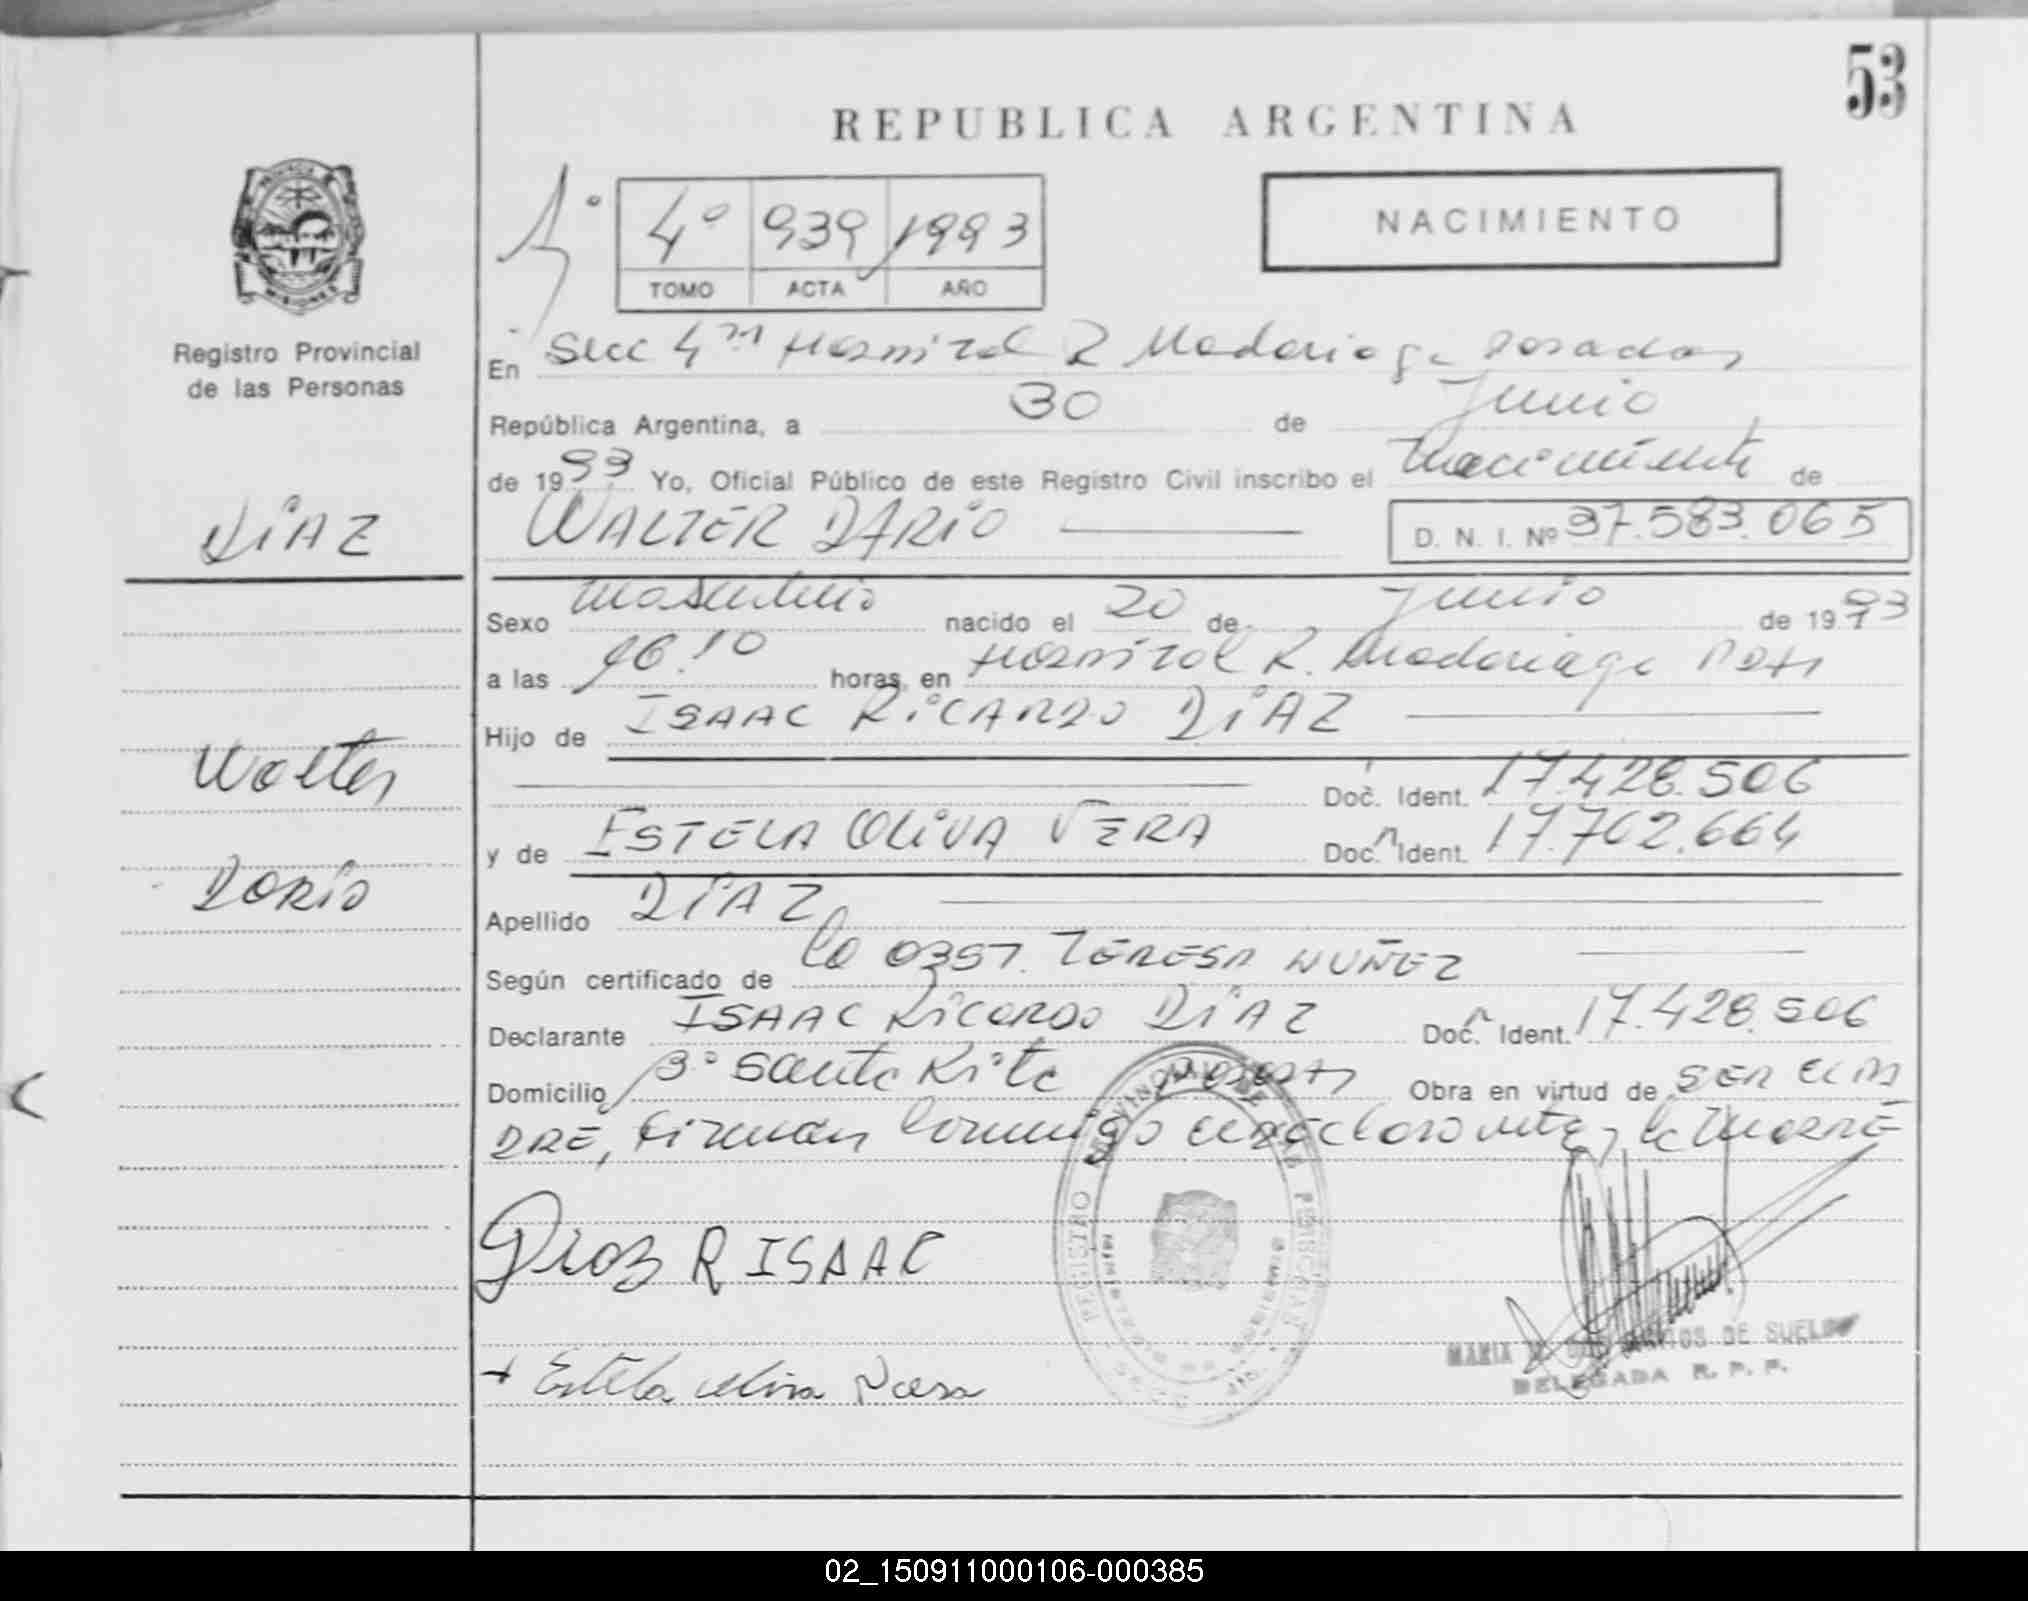 53
REPUBLICA ARGENTINA
NACIMIENTO
4º 939 1993
TOMO ACTA AÑO
Registro Provincial
de las Personas
DÍAZ
Walter
Dario
En Secc 4ta Hospital R Madariaga Posadas
República Argentina, a 30 de Junio
de 1993 Yo, Oficial Público de este Registro Civil inscribo el nacimiento de
WALTER DARIO D. N. I. Nº 37.583.065
Sexo masculino nacido el 20 de Junio de 1993
a las 16.10 horas, en Hospital R. Madariaga Pdas
Hijo de ISAAC RICARDO DIAZ
Doc. Ident. 17.428.506
y de ESTELA OLIVA VERA Doc. Ident. 17.702.664
Apellido DIAZ
Según certificado de la OBST. TERESA NUÑEZ
Declarante ISAAC Ricardo DIAZ Doc. Ident. 17.428.506
Domicilio Bº Santa Rita Posadas Obra en virtud de SER EL PA
DRE, Firman conmigo el declarante y la MADRE
Diaz R ISAAC
+ Estela oliva
MARIA DE SUELDO
DELEGADA R. P. P.
02_150911000106-000385